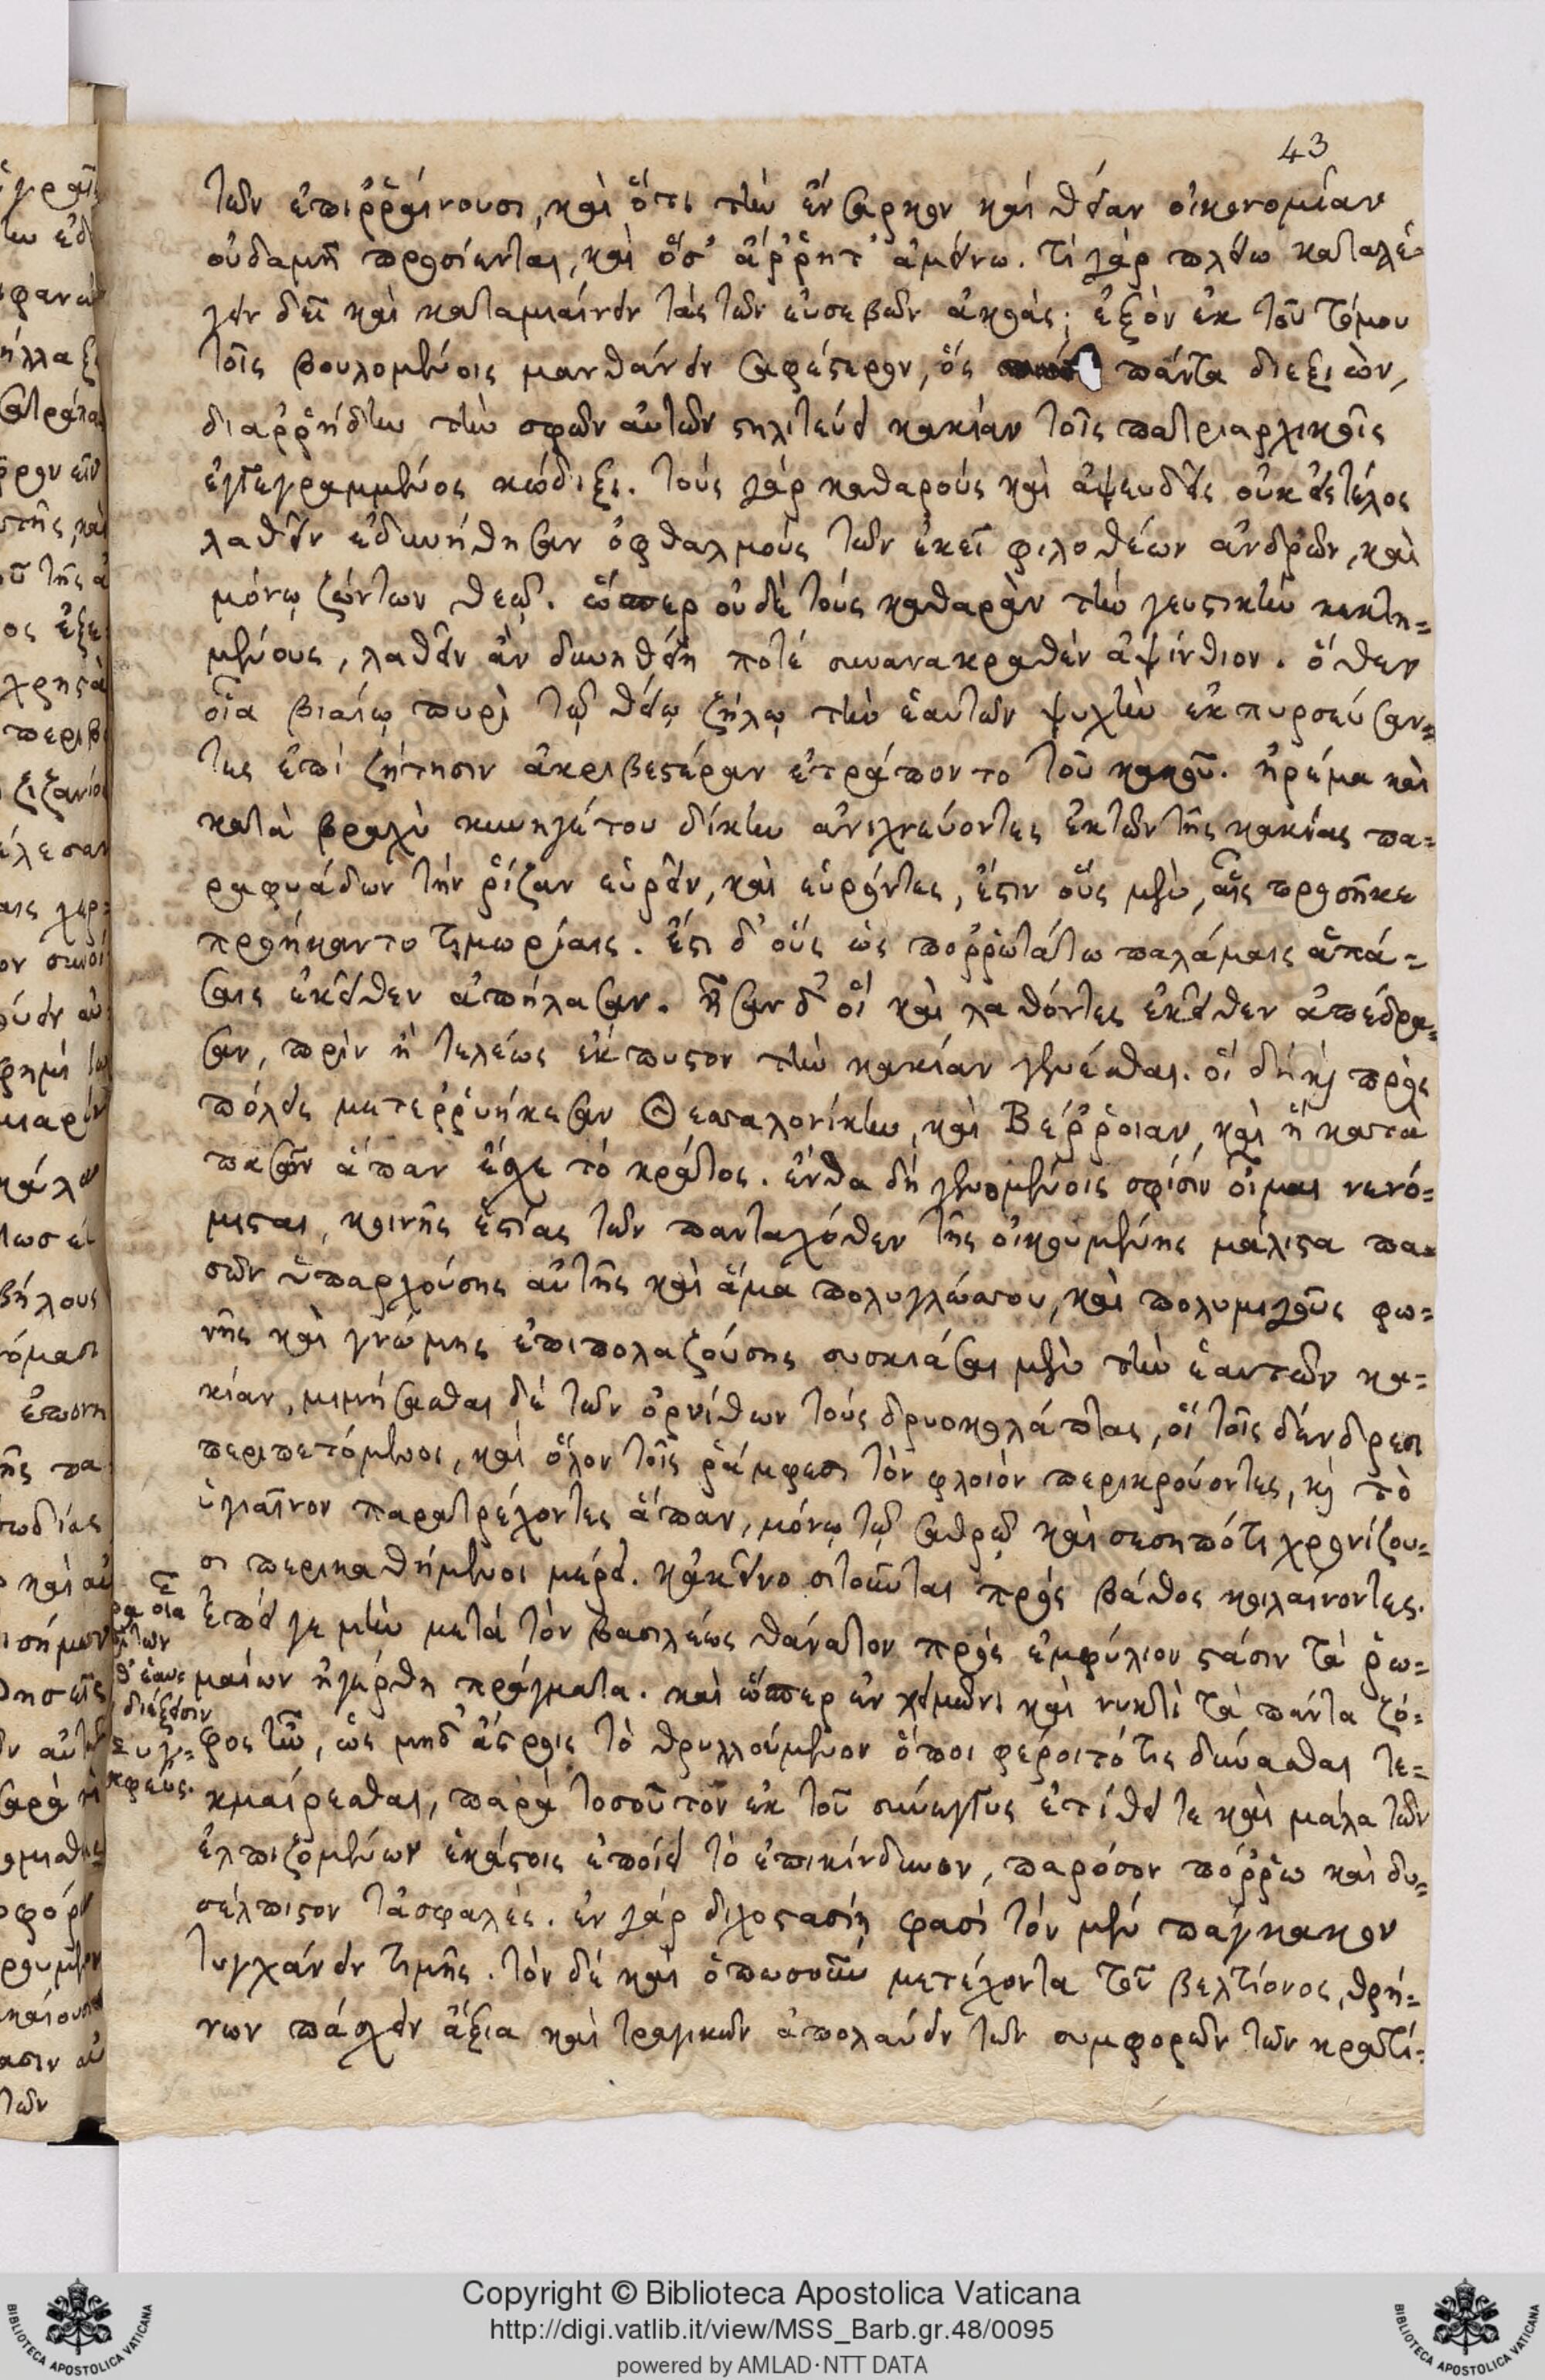 43
τῶν ἐπιῤῥαίνουσι, καὶ ὅτι τὴν ἔνσαρκον καὶ θείαν οἰκονομίαν
οὐδαμῆ προσίενται, καὶ ὅσ' ἄῤῥητ' ἀμείνω. τί γὰρ πλείω καταλέ-
γειν δεῖ καὶ καταμιαίνειν τὰς τῶν εὐσεβῶν ἀκοάς; ἐξὸν ἐκ τοῦ τόμου
τοῖς βουλομένοις μανθάνειν σαφέστερον, ὃς πάντα διεξιὼν,
διαῤῥήδην τὴν σφῶν αὐτῶν στηλιτεύει κακίαν τοῖς πατριαρχικοῖς
ἐγγεγραμμένος κώδιξι. τοὺς γὰρ καθαροὺς καὶ ἀψευδεῖς οὐκ εἰς τέλος
λαθεῖν ἐδυνήθησαν ὀφθαλμοὺς τῶν ἐκεῖ φιλοθέων ἀνδρῶν, καὶ
μόνῳ ζώντων θεῷ. ὥσπερ οὐδὲ τοὺς καθαρὰν τὴν γευστικὴν κεκτη=
μένους, λαθεῖν ἂν δυνηθείη ποτέ συνανακραθὲν ἀψίνθιον. ὅθεν
οἷα βιαίῳ πυρὶ τῷ θείῳ ζήλῳ τὴν ἑαυτῶν ψυχὴν ἐκπυρσεύσαν=
τες ἐπὶ ζήτησιν ἀκριβεστέραν ἐτράποντο τοῦ κακοῦ. ἠρέμα καὶ
κατὰ βραχὺ κυνηγέτου δίκην ἀνιχνεύοντες ἐκ τῶν τῆς κακίας πα=
ραφυάδων τὴν ῥίζαν εὑρεῖν, καὶ εὑρόντες, ἔστιν οὓς μὲν, αἷς προσῆκε
προήκαντο τιμωρίαις. ἔστι δ' οὓς ὡς ποῤῥωτάτω παλάμαις ἁπά=
σαις ἐκεῖθεν ἀπήλασαν. ἦσαν δ' οἳ καὶ λαθόντες ἐκεῖθεν ἀπέδρα=
σαν, πρὶν ἢ τελέως ἔκπυστον τὴν κακίαν γενέσθαι. οἳ δὴ καὶ πρὸς
πόλεις μετεῤῥυήκεσαν Θεσσαλονίκην, καὶ Βέῤῥοιαν, καὶ ἣ κατὰ
πασῶν ἅπαν ἔχει τὸ κράτος. ἔνθα δὴ γενομένοις σφίσιν οἶμαι νενό=
μισται, κοινῆς ἑστίας τῶν πανταχόθεν τῆς οἰκουμένης μάλιστα πα=
σῶν ὑπαρχούσης αὐτῆς καὶ ἅμα πολυγλώσσου, καὶ πολυμιγοῦς φω=
νῆς καὶ γνώμης ἐπιπολαζούσης συσκιάσαι μὲν τὴν ἑαυτῶν κα=
κίαν, μιμήσασθαι δὲ τῶν ὀρνίθων τοὺς δρυοκολάπτας, οἳ τοῖς δένδρεσι
περιπετόμενοι, καὶ ὅλον τοῖς ῥάμφεσι τὸν φλοιὸν περικρούοντες, καὶ τὸ
ὑγιαῖνον παρατρέχοντες ἅπαν, μόνῳ τῷ σαθρῷ καὶ σεσηπότι χρονίζου=
σι περικαθήμενοι μέρει. κἀκεῖνο σιτοῦνται πρὸς βάθος κοιλαίνοντες.
ἐπεί γε μὴν μετὰ τὸν βασιλέως θάνατον πρὸς ἐμφύλιον στάσιν τὰ ῥω=
μαίων ἠγέρθη πράγματα. καὶ ὥσπερ ἐν χειμῶνι καὶ νυκτὶ τὰ πάντα ζό=
φος ἦν, ὡς μηδ' ἄστροις τὸ θρυλλούμενον ὅποι φέροιτό τις δύνασθαι τε=
κμαίρεσθαι, παρὰ τοσοῦτον ἐκ τοῦ σύνεγγυς ἐτίθει τε καὶ μάλα τῶν
ἐλπιζομένων ἑκάστοις ἐποίει τὸ ἐπικίνδυνον, παρόσον πόῤῥω καὶ δυ=
σέλπιστον τἀσφαλές. ἐν γὰρ διχοστασίῃ φασὶ τὸν μὲν πάγκακον
τυγχάνειν τιμῆς. τὸν δὲ καὶ ὁπωσοῦν μετέχοντα τοῦ βελτίονος, θρή=
νων πάσχειν ἄξια καὶ τραγικῶν ἀπολαύειν τῶν συμφορῶν τῶν κρατί=
Copyright © Biblioteca Apostolica Vaticana
http://digi.vatlib.it/view/MSS_Barb.gr.48/0095
powered by AMLAD·NTT DATA
BIBLIOTECA APOSTOLICA VATICANA
BIBLIOTECA APOSTOLICA VATICANA